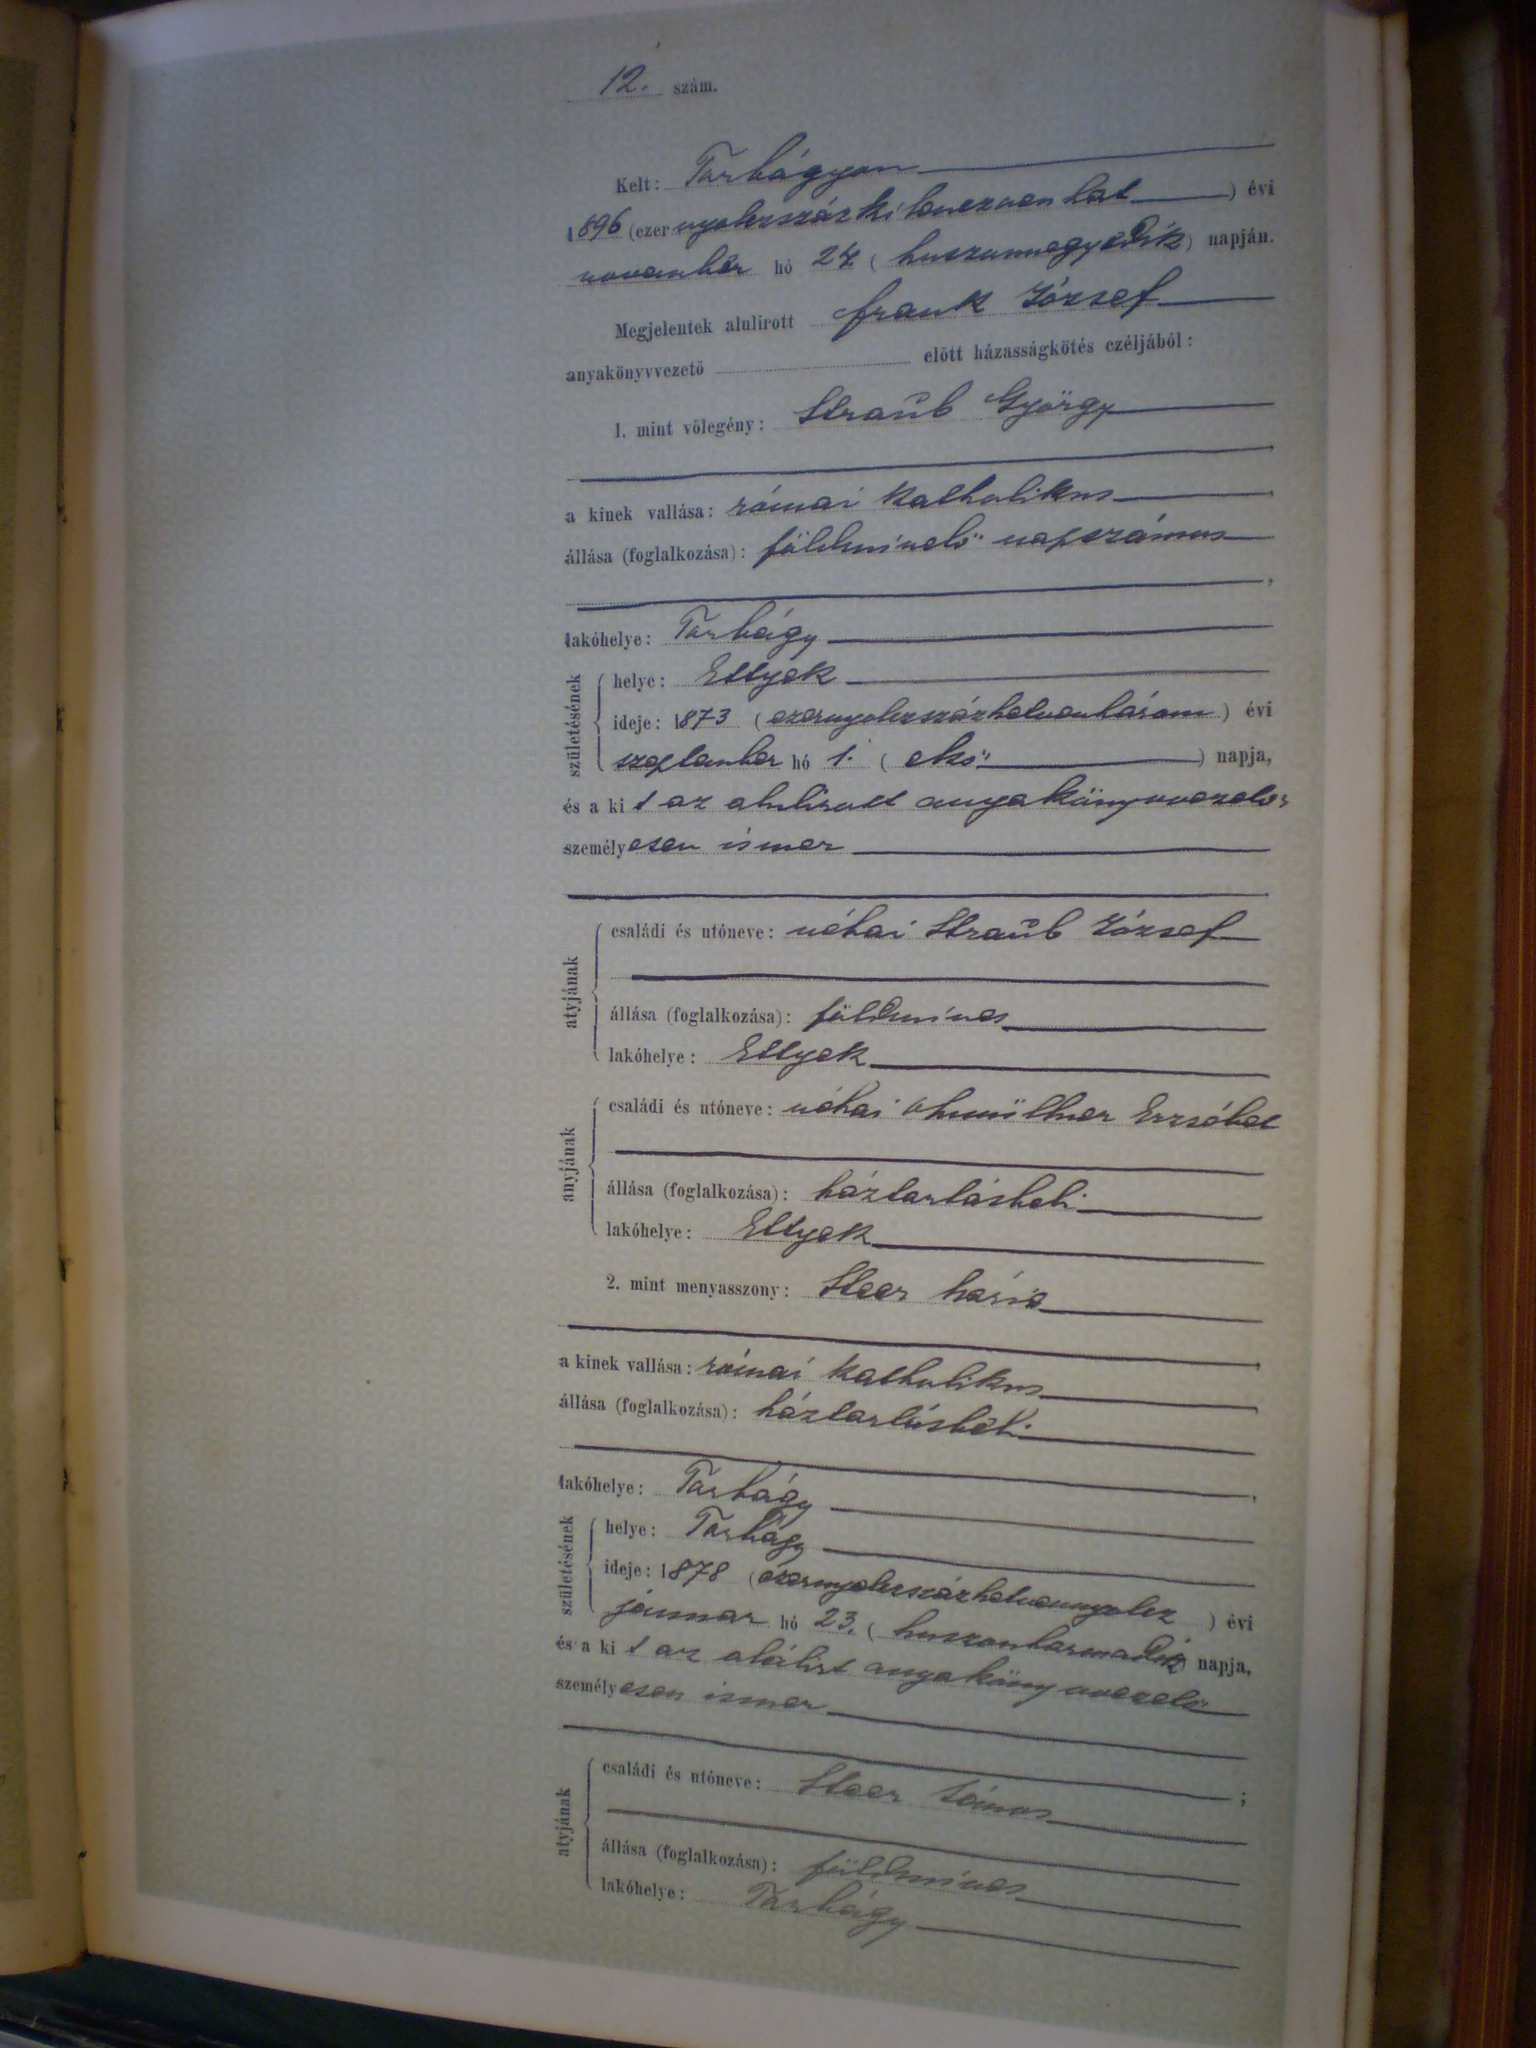 12. szám.
Kelt: Torbágyon
1896 (ezernyolczszázkilenczvenhat) évi
november hó 24 (huszonnegyedik) napján.
Megjelentek alulírott Frank József
anyakönyvvezető előtt házasságkötés czéljából:
1. mint völegény: Straub György
a kinek vallása: római katholikus
állása (foglalkozása): földmivelő napszámos
lakóhelye: Torbágy
születésének
helye: Ettyek
ideje: 1873 (ezernyolczszázhetvenhárom) évi
szeptember hó 1. (első) napja,
és a kit az alulirott anyakönyvvezető
személyesen ismer
atyjának
családi és utóneve: néhai Straub József
állása (foglalkozása): földmives
lakóhelye: Ettyek
anyjának
családi és utóneve: néhai Erzsébet
állása (foglalkozása): háztartásbeli
lakóhelye: Ettyek
2. mint menyasszony: Steer Mária
a kinek vallása: római katholikus
állása (foglalkozása): háztartásbeli
lakóhelye: Torbágy
születésének
helye: Torbágy
ideje: 1878 (ezernyolczszázhetvennyolcz) évi
január hó 23. (huszonharmadik) napja,
és a kit az alálirt anyakönyvvezető
személyesen ismer
atyjának
családi és utóneve: Steer János ;
állása (foglalkozása): földmives
lakóhelye: Torbágy